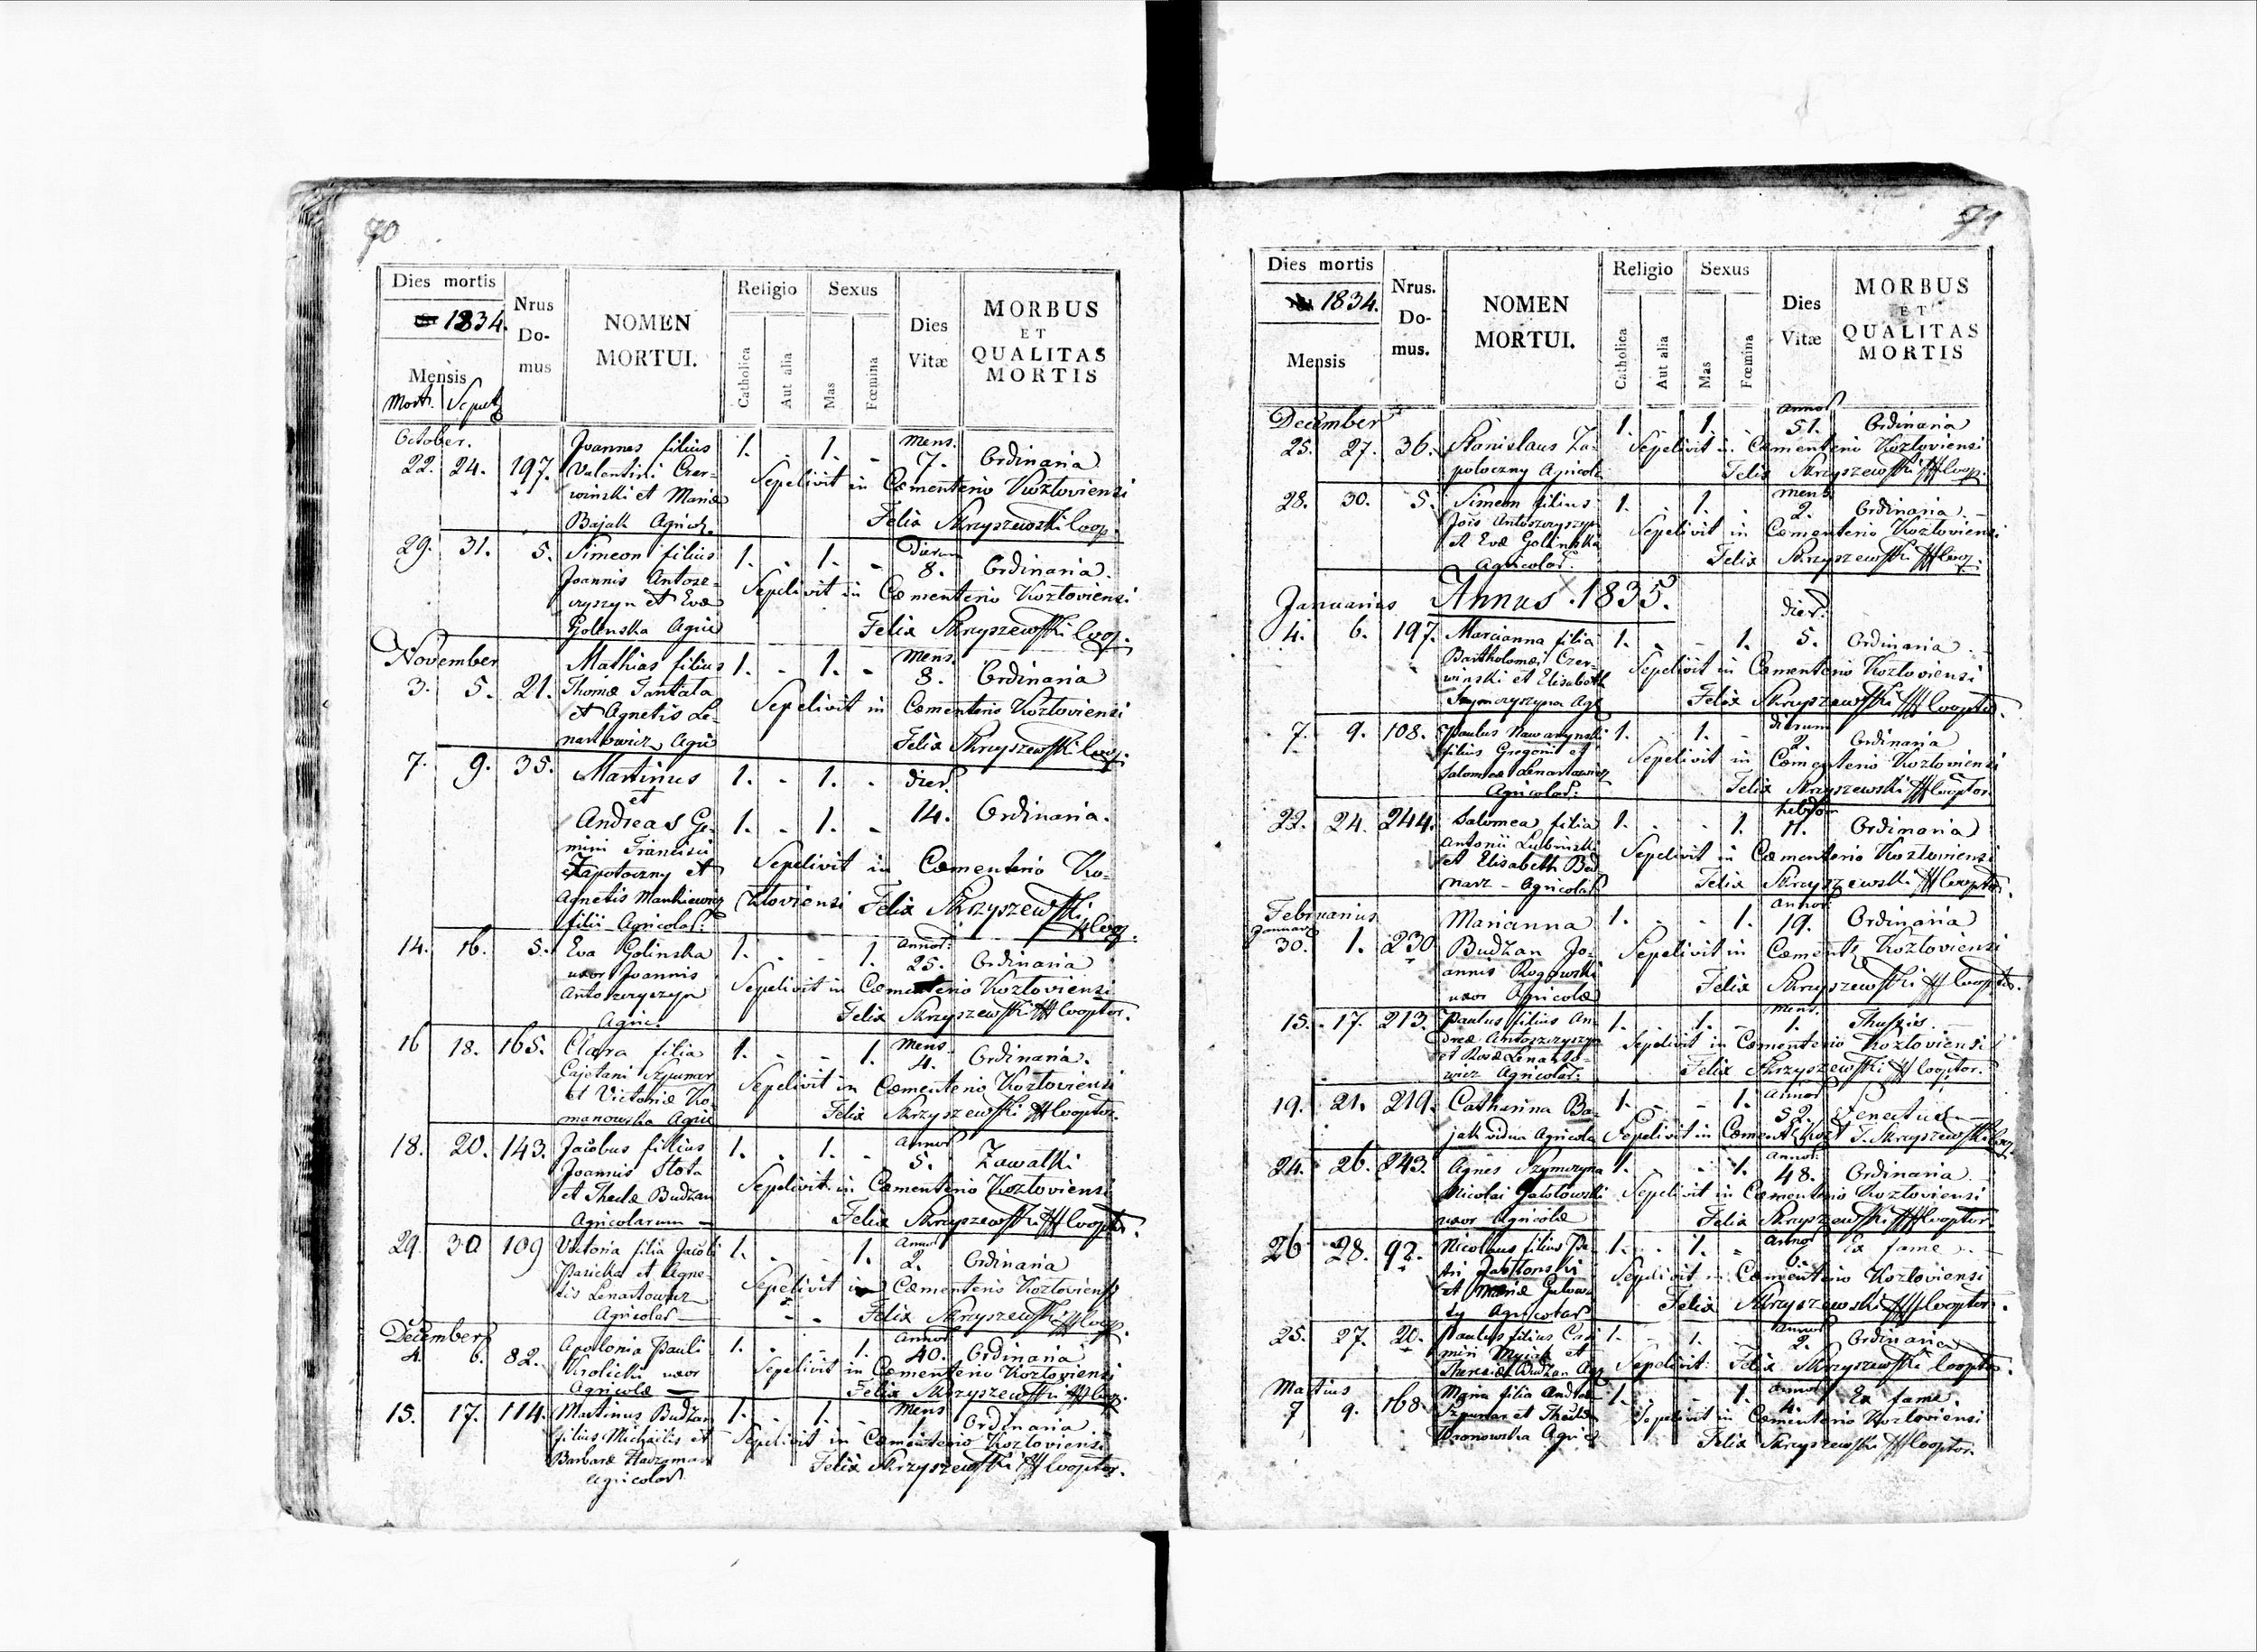 70
Dies mortis
1834.
Mensis
Mort. Sepult.
Nrus Domus
NOMEN MORTUI.
Religio
Catholica
Aut alia
Sexus
Mas
Fœmina
Dies Vitæ
MORBUS
ET
QUALITAS
MORTIS
October.
22. 24. 197. Joannes filius 1. - 1. - Mens. 7. Ordinaria
Valentini Czer-
winski et Mariæ Sepelivit in Cœmenterio Kozloviensi
Bajak Agricol. Felix Skrzyszewski Coop.
29. 31. 5. Simeon filius 1. - 1. - Dierum 8. Ordinaria.
Joannis Antosz-
czyszyn et Evæ Sepelivit in Cœmenterio Kozloviensi
Golinska Agric Felix Skrzyszewski Coop.
November
3. 5. 21. Mathias filius 1. - 1. - Mens. 8. Ordinaria
Thomæ Tantala
et Agnetis Le- Sepelivit in Cœmenterio Kozloviensi
nartowicz Agric Felix Skrzyszewski Coop.
7. 9. 35. Martinus 1. - 1. - dier.
et
Andreas Ge- 1. - 1. - 14. Ordinaria.
mini Francisci
Zapotoczny et Sepelivit in Cœmenterio Ko-
Agnetis Mankiewicz zloviensi Felix Skrzyszewski
filii Agricolar: Coop.
14. 16. 5. Eva Golinska 1. - - 1. Annor: 25. Ordinaria
uxor Joannis Sepelivit in Cœmenterio Kozloviensi
Antoszczyszyn
Agric. Felix Skrzyszewski Cooptor.
16 18. 165. Clara filia 1. - - 1. Mens. 4. Ordinaria.
Cajetani Szpunar
et Victoriæ Ko- Sepelivit in Cœmenterio Kozloviensi
manowska Agric Felix Skrzyszewski Cooptor.
18. 20. 143. Jacobus filius 1. - 1. - Annor 5. Zawalki
Joannis Slota
et Theclæ Budzan Sepelivit in Cœmenterio Kozloviensi
Agricolarum Felix Skrzyszewski Cooptor.
29. 30 109 Victoria filia Jacobi 1. - - 1. Annor 2. Ordinaria
et Agne-
tis Lenartowicz Sepelivit in Cœmenterio Kozloviensi
Agricolar Felix Skrzyszewski Coop.
December
4. 6. 82. Apolonia Pauli 1. - - 1. Annor 40. Ordinaria
Krolicki uxor Sepelivit in Cœmenterio Kozloviensi
Agricolæ Felix Skrzyszewski Coop.
15. 17. 114. Martinus Budzan 1. - 1. - Mens 1. Ordinaria
filius Michaelis et Sepelivit in Cœmenterio Kozloviensi
Barbaræ
Agricolar Felix Skrzyszewski Cooptor.
71
Dies mortis
1834.
Mensis
Nrus. Domus.
NOMEN MORTUI.
Religio
Catholica
Aut alia
Sexus
Mas
Fœmina
Dies Vitæ
MORBUS
ET
QUALITAS
MORTIS
December
25. 27. 36. Stanislaus Za- 1. 1. Annor 51. Ordinaria
potoczny Agricola Sepelivit in Cœmenterio Kozloviensi
Felix Skrzyszewski Coop.
28. 30. 5. Simeon filius 1. - 1. - mens 2. Ordinaria.
Jois Antoszczyszyn
et Evæ Golinska Sepelivit in Cœmenterio Kozloviensi
Agricolar. Felix Skrzyszewski Coop.
Januarius Annus 1835.
4. 6. 197. Marianna filia 1. - - 1. dier. 5. Ordinaria
Bartholomæi Czer-
winski et Elisabeth Sepelivit in Cœmenterio Kozloviensi
Szymczyszyna Agr Felix Skrzyszewski Cooptor.
7. 9. 108. Paulus Nawarynski 1. - 1. - dierum 2. Ordinaria
filius Gregorii et
Salomeæ Lenartowicz Sepelivit in Cœmenterio Kozloviensi
Agricolar: Felix Skrzyszewski Cooptor.
22. 24. 244. Salomea filia 1. - - 1. hebdom 11. Ordinaria
Antonii Lubinski
et Elisabeth Bed Sepelivit in Cœmenterio Kozloviensi
narz - Agricolar Felix Skrzyszewski Cooptor.
Februarius
Januar
30. 1. 230 Marianna 1. - - 1. annor 19. Ordinaria
Budzan Jo-
annis Rogowski Sepelivit in Cœment. Kozloviensi
uxor Agricolæ Felix Skrzyszewski Cooptor.
15. 17. 213. Paulus filius An- 1. - 1. - Mens. 1. Thussis
dreæ Antoszczyszyn
et Rosæ Lenarto- Sepelivit in Cœmenterio Kozloviensi
wicz Agricolar: Felix Skrzyszewski Cooptor.
19. 21. 219. Catharina Ba- 1. - - 1. Annor 52. Senectus
jak vidua Agricola Sepelivit in Cœment. Kozl F. Skrzyszewski Coop
24. 26. 243. Agnes Szymczyna 1. - - 1. Annor. 48. Ordinaria
Nicolai Sepelivit in Cœmenterio Kozloviensi
uxor Agricolæ Felix Skrzyszewski Cooptor.
26 28. 92. Nicolaus filius Pe- 1. - 1. - Annor 6. Ex fame
tri Jablonski
et Mariæ Sepelivit in Cœmenterio Kozloviensi
Agricolar Felix Skrzyszewski Cooptor.
25. 27. 20. Paulus filius Casi 1. - 1. - Annor 2. Ordinaria
miri et
Theresiæ Budzan Agr Sepelivit Felix Skrzyszewski Cooptor.
Martius
7 9. 168 Maria filia Andreæ 1. - - 1. Annor 4. Ex fame.
Szpunar et Theclæ Sepelivit in Cœmenterio Kozloviensi
Wronowska Agric Felix Skrzyszewski Cooptor.